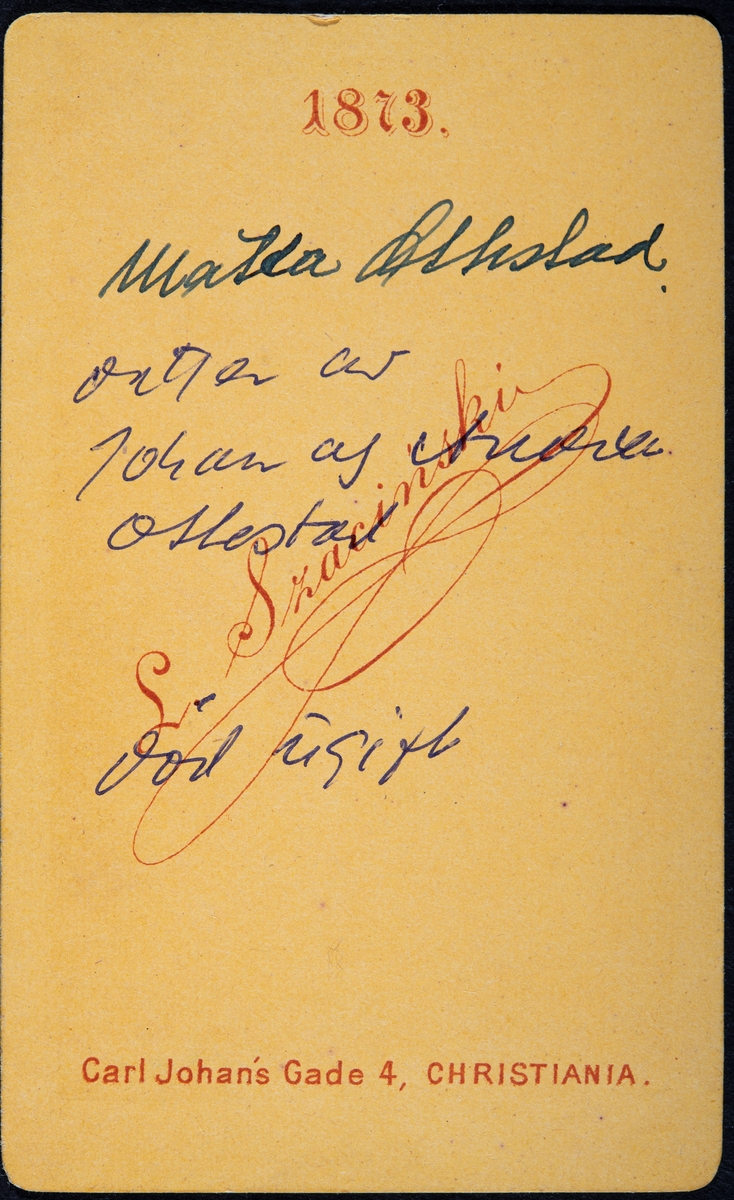 1873.
Othestad.
datter av
Johan og Andrea
Othestad
L. Szacinski
död ugift
Carl Johan's Gade 4, CHRISTIANIA.